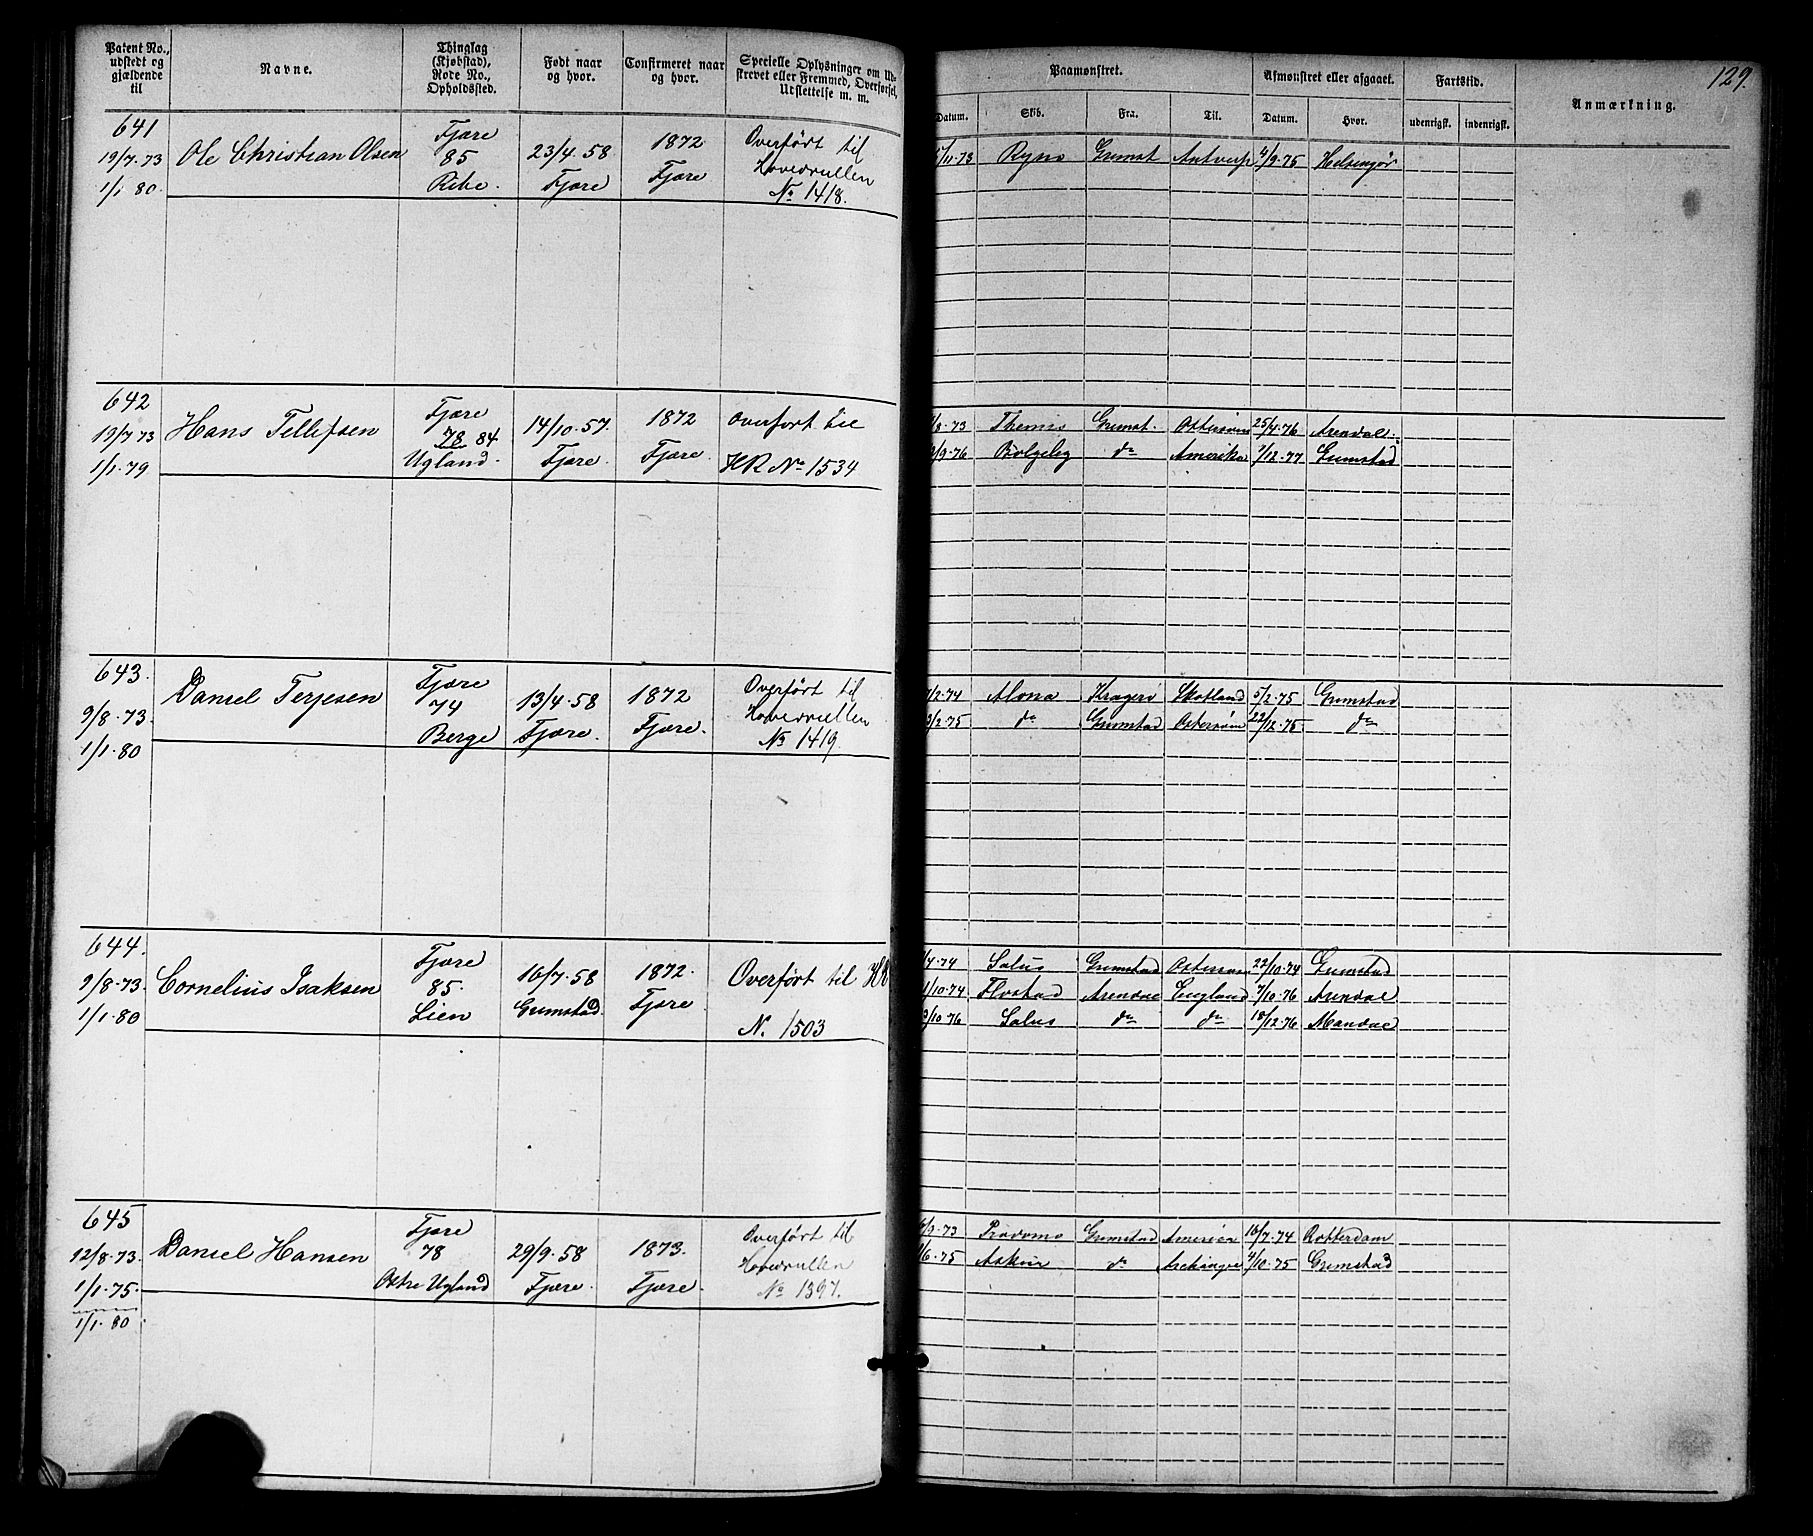 129.
Patent No., udstedt og gjældende til
Navne.
Thinglag (Kjøbstad), Rode No., Opholdssted.
Født naar og hvor.
Confirmeret naar og hvor.
Specielle Oplysninger om Udskrevet eller Fremmed, Overførsel, Udslettelse m. m.
Paamønstret.
Afmønstret eller afgaaet.
Fartstid.
Anmærkning.
Datum.
Skib.
Fra.
Til.
Datum.
Hvor.
udenrigsk.
indenrigsk.
641
19/7.73
1/1 80.
Ole Christian Olsen
Fjære
85
Ribe.
23/4.58
Fjære
1872
Fjære
Overført til
Hovedrullen
No 1418.
11.73 Ryno Grimst Antverp 4/9.75 Helsingør
642
19/7 73
1/1.79
Hans Tellefsen
Fjære
78 84
Ugland.
14/10.57.
Fjære.
1872
Fjære.
Overført til
HR No 1534
8.73 Themis Grimst. Østersøen 25/4.76 Arendal.
9.76 Do Amerika 7/12.77 Grimstad
643.
9/8.73.
1/1.80
Daniel Terjesen
Fjære
74
Berge
13/4.58
Fjære.
1872
Fjære.
Overført til
Hovedrullen
No 1419.
2.74 Alona Kragerø Skotland 5/2.75 Grimstad
2.75 do Grimstad Østersøen 22/12.75 do
644.
9/8.73.
1/1.80
Cornelius Isaksen
Fjære
85.
Lien
16/7.58
Grimstad.
1872.
Fjære.
Overført til HR
N. 1503
4.74 Salus Grimstad Østersøen 22/10.74 Grimstad
10.74 Flostad Arendal England 7/10.76 Arendal
10.76 Salus do do 18/12.76 Mandal
645
12/8.73.
1/1.75.
1/1.80.
Daniel Hansen
Fjære
78
Østre Ugland
29/9.58
Fjære.
1873.
Fjære.
Overført til
Hovedrullen
No 1397.
9.73 Prodomo Grimstad Amerika 16/7.74 Rotterdam
6.75 Askur do Archangel 4/10.75 Grimstad